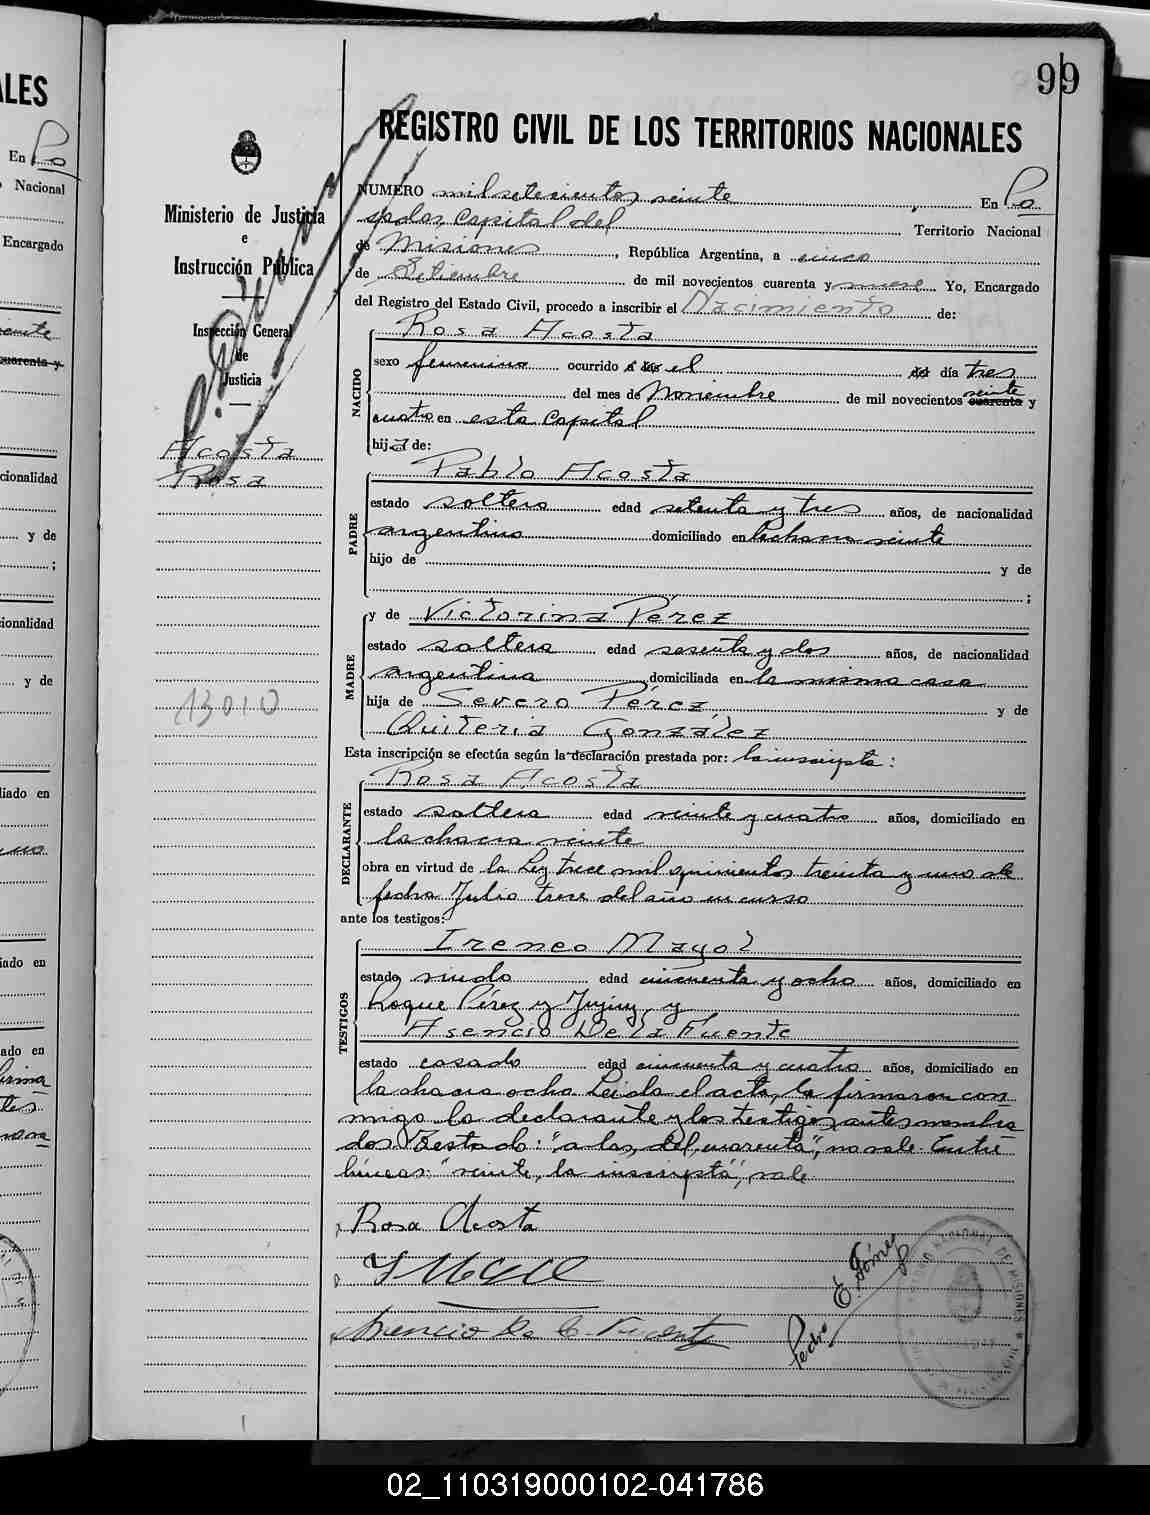 99
REGISTRO CIVIL DE LOS TERRITORIOS NACIONALES
Ministerio de Justicia
e
Instrucción Pública
Inspección General
de
Justicia
Acosta
Rosa
13010
NUMERO mil setecientos veinte En Po
sadas, Capital del Territorio Nacional
de Misiones, República Argentina, a cinco
de Setiembre de mil novecientos cuarenta y nueve Yo, Encargado
del Registro del Estado Civil, procedo a inscribir el Nacimiento de:
NACIDO
Rosa Acosta
sexo femenino ocurrido a las el del día tres
veinte
del mes de Noviembre de mil novecientos cuarenta y
cuatro en esta Capital
hija de:
PADRE
Pablo Acosta
estado soltero edad setenta y tres años, de nacionalidad
argentino domiciliado en la chacra veinte
hijo de y de
;
MADRE
y de Victorina Pérez
estado soltera edad sesenta y dos años, de nacionalidad
argentina domiciliada en la misma casa
hija de Severo Pérez y de
Quiteria González
Esta inscripción se efectúa según la declaración prestada por: la inscripta:
DECLARANTE
Rosa Acosta
estado soltera edad veinte y cuatro años, domiciliado en
la chacra veinte
obra en virtud de la Ley trece mil quinientos treinta y uno de
fecha Julio trece del año en curso
ante los testigos:
TESTIGOS
Ireneo Mayol
estado viudo edad cincuenta y ocho años, domiciliado en
Roque Pérez y Jujuy y
Asencio De la Fuente
estado casado edad cincuenta y cuatro años, domiciliado en
la chacra ocho Leida el acta, la firmaron con
migo la declarante y los testigos antes nombra
dos Testado: "a las, del, cuarenta", no vale Entre
lineas: "veinte, la inscripta", vale
Rosa Acosta
Asencio De la Fuente
Pedro E. Gómez
ALES
En Po
Nacional
Encargado
cuarenta y
cionalidad
y de
;
cionalidad
y de
liado en
iado en
ado en
02_110319000102-041786